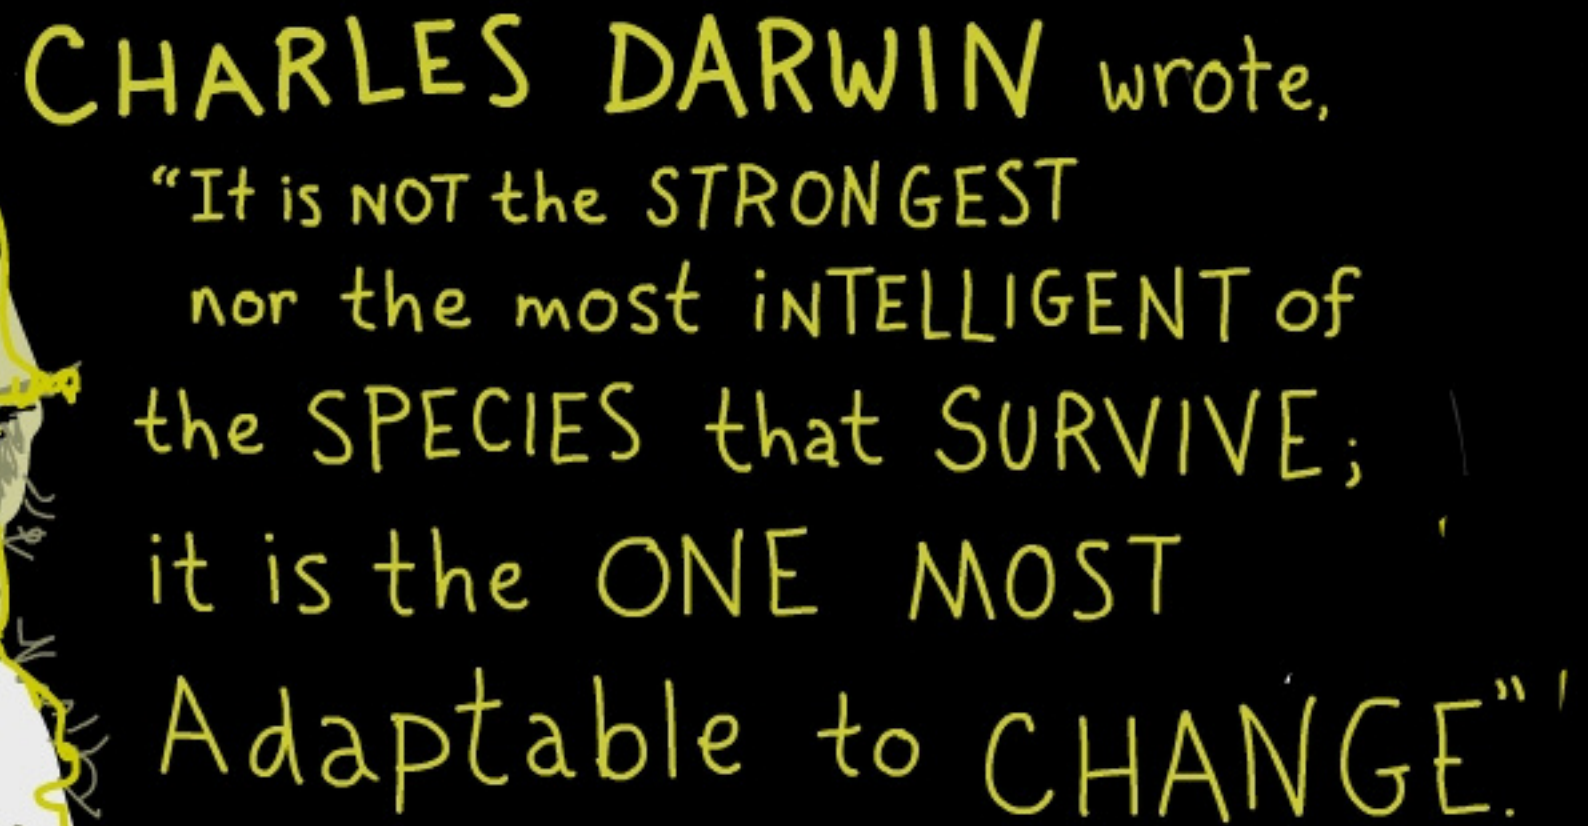 CHARLES DARWIN wrote,
"It is NOT the STRONGEST
nor the most iNTELLIGENT of
the SPECIES that SURVIVE;
it is the ONE MOST
Adaptable to CHANGE."'